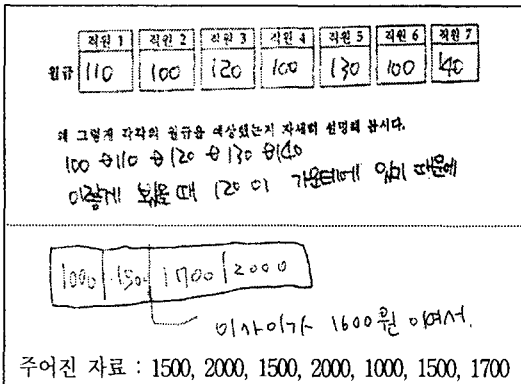 직원 1 직원 2 직원 3 직원 4 직원 5 직원 6 직원 7
월급 110 100 120 100 130 100 140
왜 그렇게 각각의 월급을 예상했는지 자세히 설명해 봅시다.
100 110 120 130 140
이렇게 봤을 때 120 이 가운데에 있기 때문에
1000 1500 1700 2000
이 사이가 1600원 이여서.
주어진 자료 : 1500, 2000, 1500, 2000, 1000, 1500, 1700